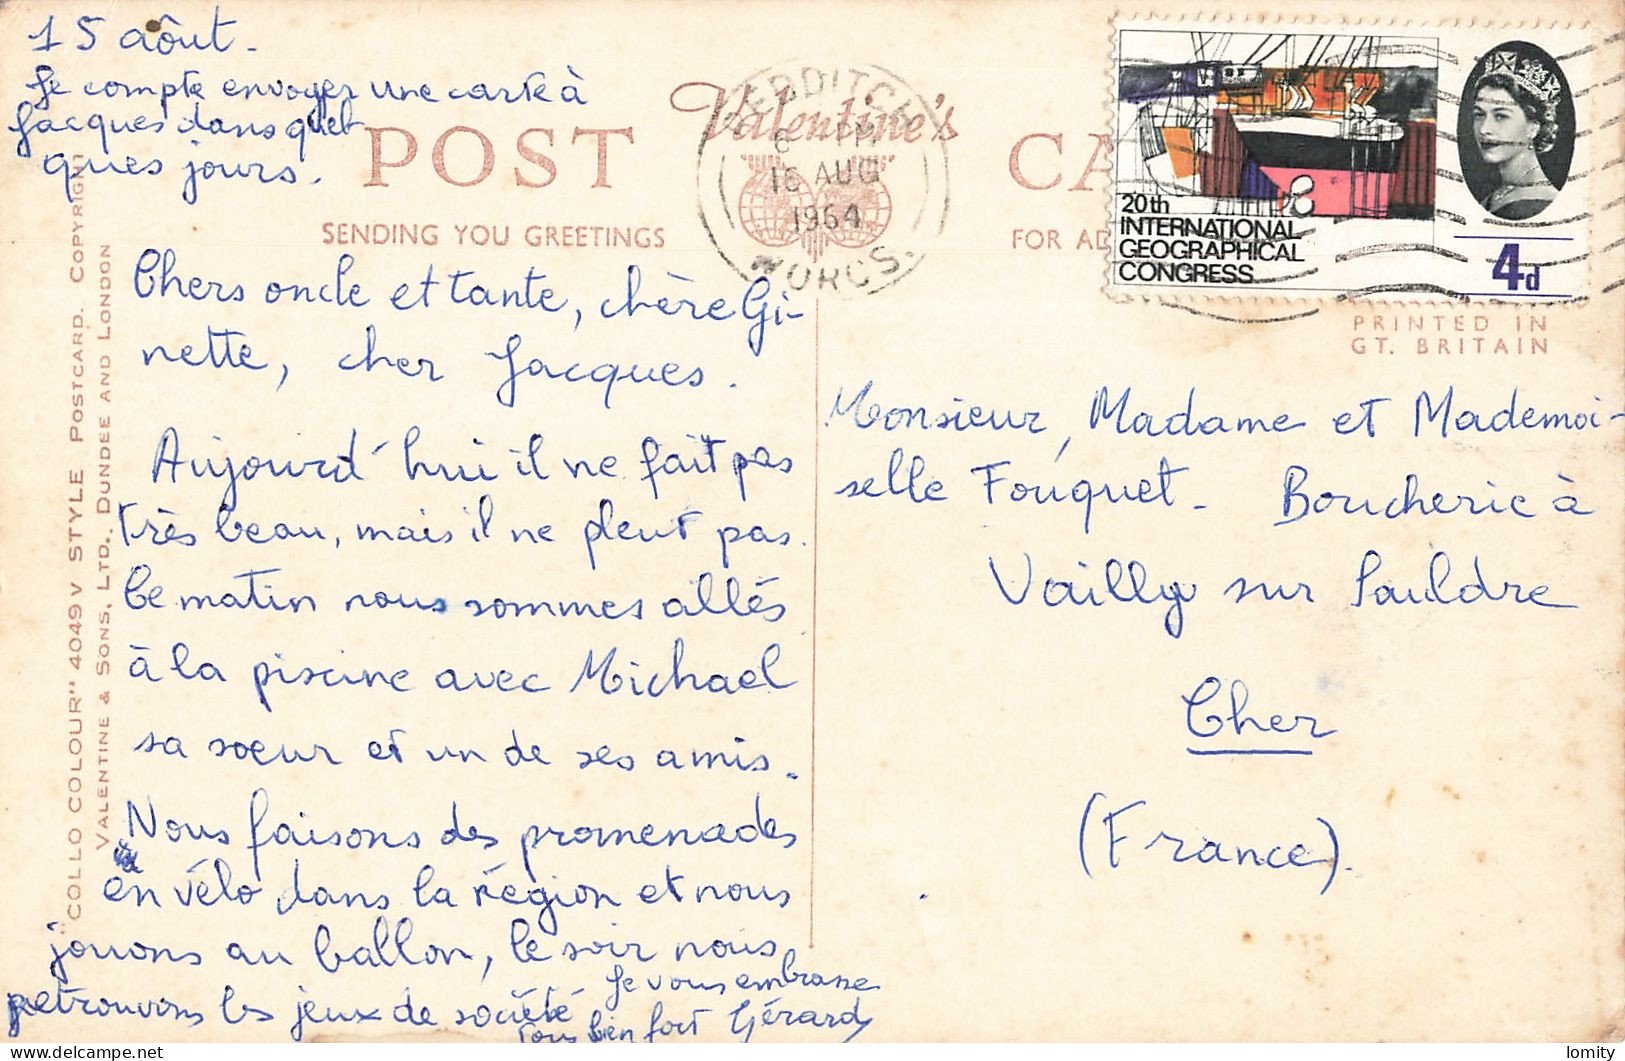 15 aôut.
Je compte envoyer une carte à
Jacques dans quel
ques jours.
POST CA
Valentine's
SENDING YOU GREETINGS
FOR AD
REDDITCH
PM
16 AUG
1964
WORCS.
20th
INTERNATIONAL
GEOGRAPHICAL
CONGRESS
4d
PRINTED IN
GT. BRITAIN
"COLLO COLOUR" 4049 V STYLE POSTCARD. COPYRIGHT
VALENTINE & SONS, LTD., DUNDEE AND LONDON
Chers oncle et tante, chère Gi-
nette, cher Jacques.
Aujourd'hui il ne fait pas
très beau, mais il ne pleut pas.
Ce matin nous sommes allés
à la piscine avec Michael
sa soeur et un de ses amis.
Nous faisons des promenades
en vélo dans la région et nous
jouons au ballon, le soir nous
retrouvons les jeux de société
Je vous embrasse
tous bien fort Gérard
Monsieur, Madame et Mademoi-
selle Fouquet. Boucherie à
Vailly sur Sauldre
Cher
(France).
delcampe.net
lomity